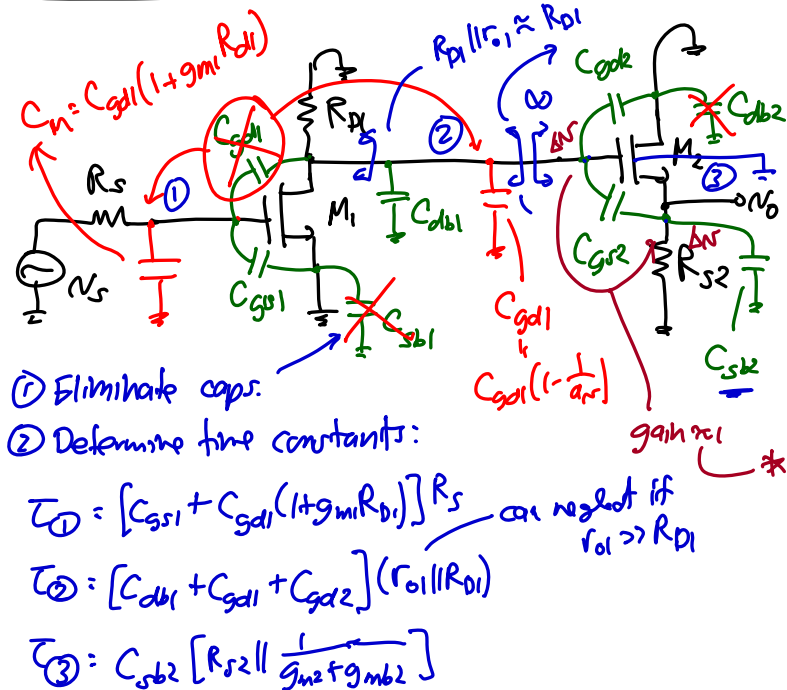 C_in = C_gd1(1+g_m1 R_d1)
R_D1||r_o1 ≈ R_D1
C_gd2
C_gd1
R_D1
②
∞
ΔN
C_db2
R_s
①
M_1
C_db1
M_2
③
N_o
N_s
C_gs1
C_sb1
C_gs2
ΔN
R_s2
C_gd1
C_gd1(1-1/a_N)
C_sb2
① Eliminate caps.
gain≈1
*
② Determine time constants:
τ_① = [C_gs1 + C_gd1(1+g_m1 R_D1)] R_s
can neglect if
r_o1 >> R_D1
τ_② = [C_db1 + C_gd1 + C_gd2](r_o1||R_D1)
τ_③ = C_sb2 [R_s2 || 1/(g_m2+g_mb2)]